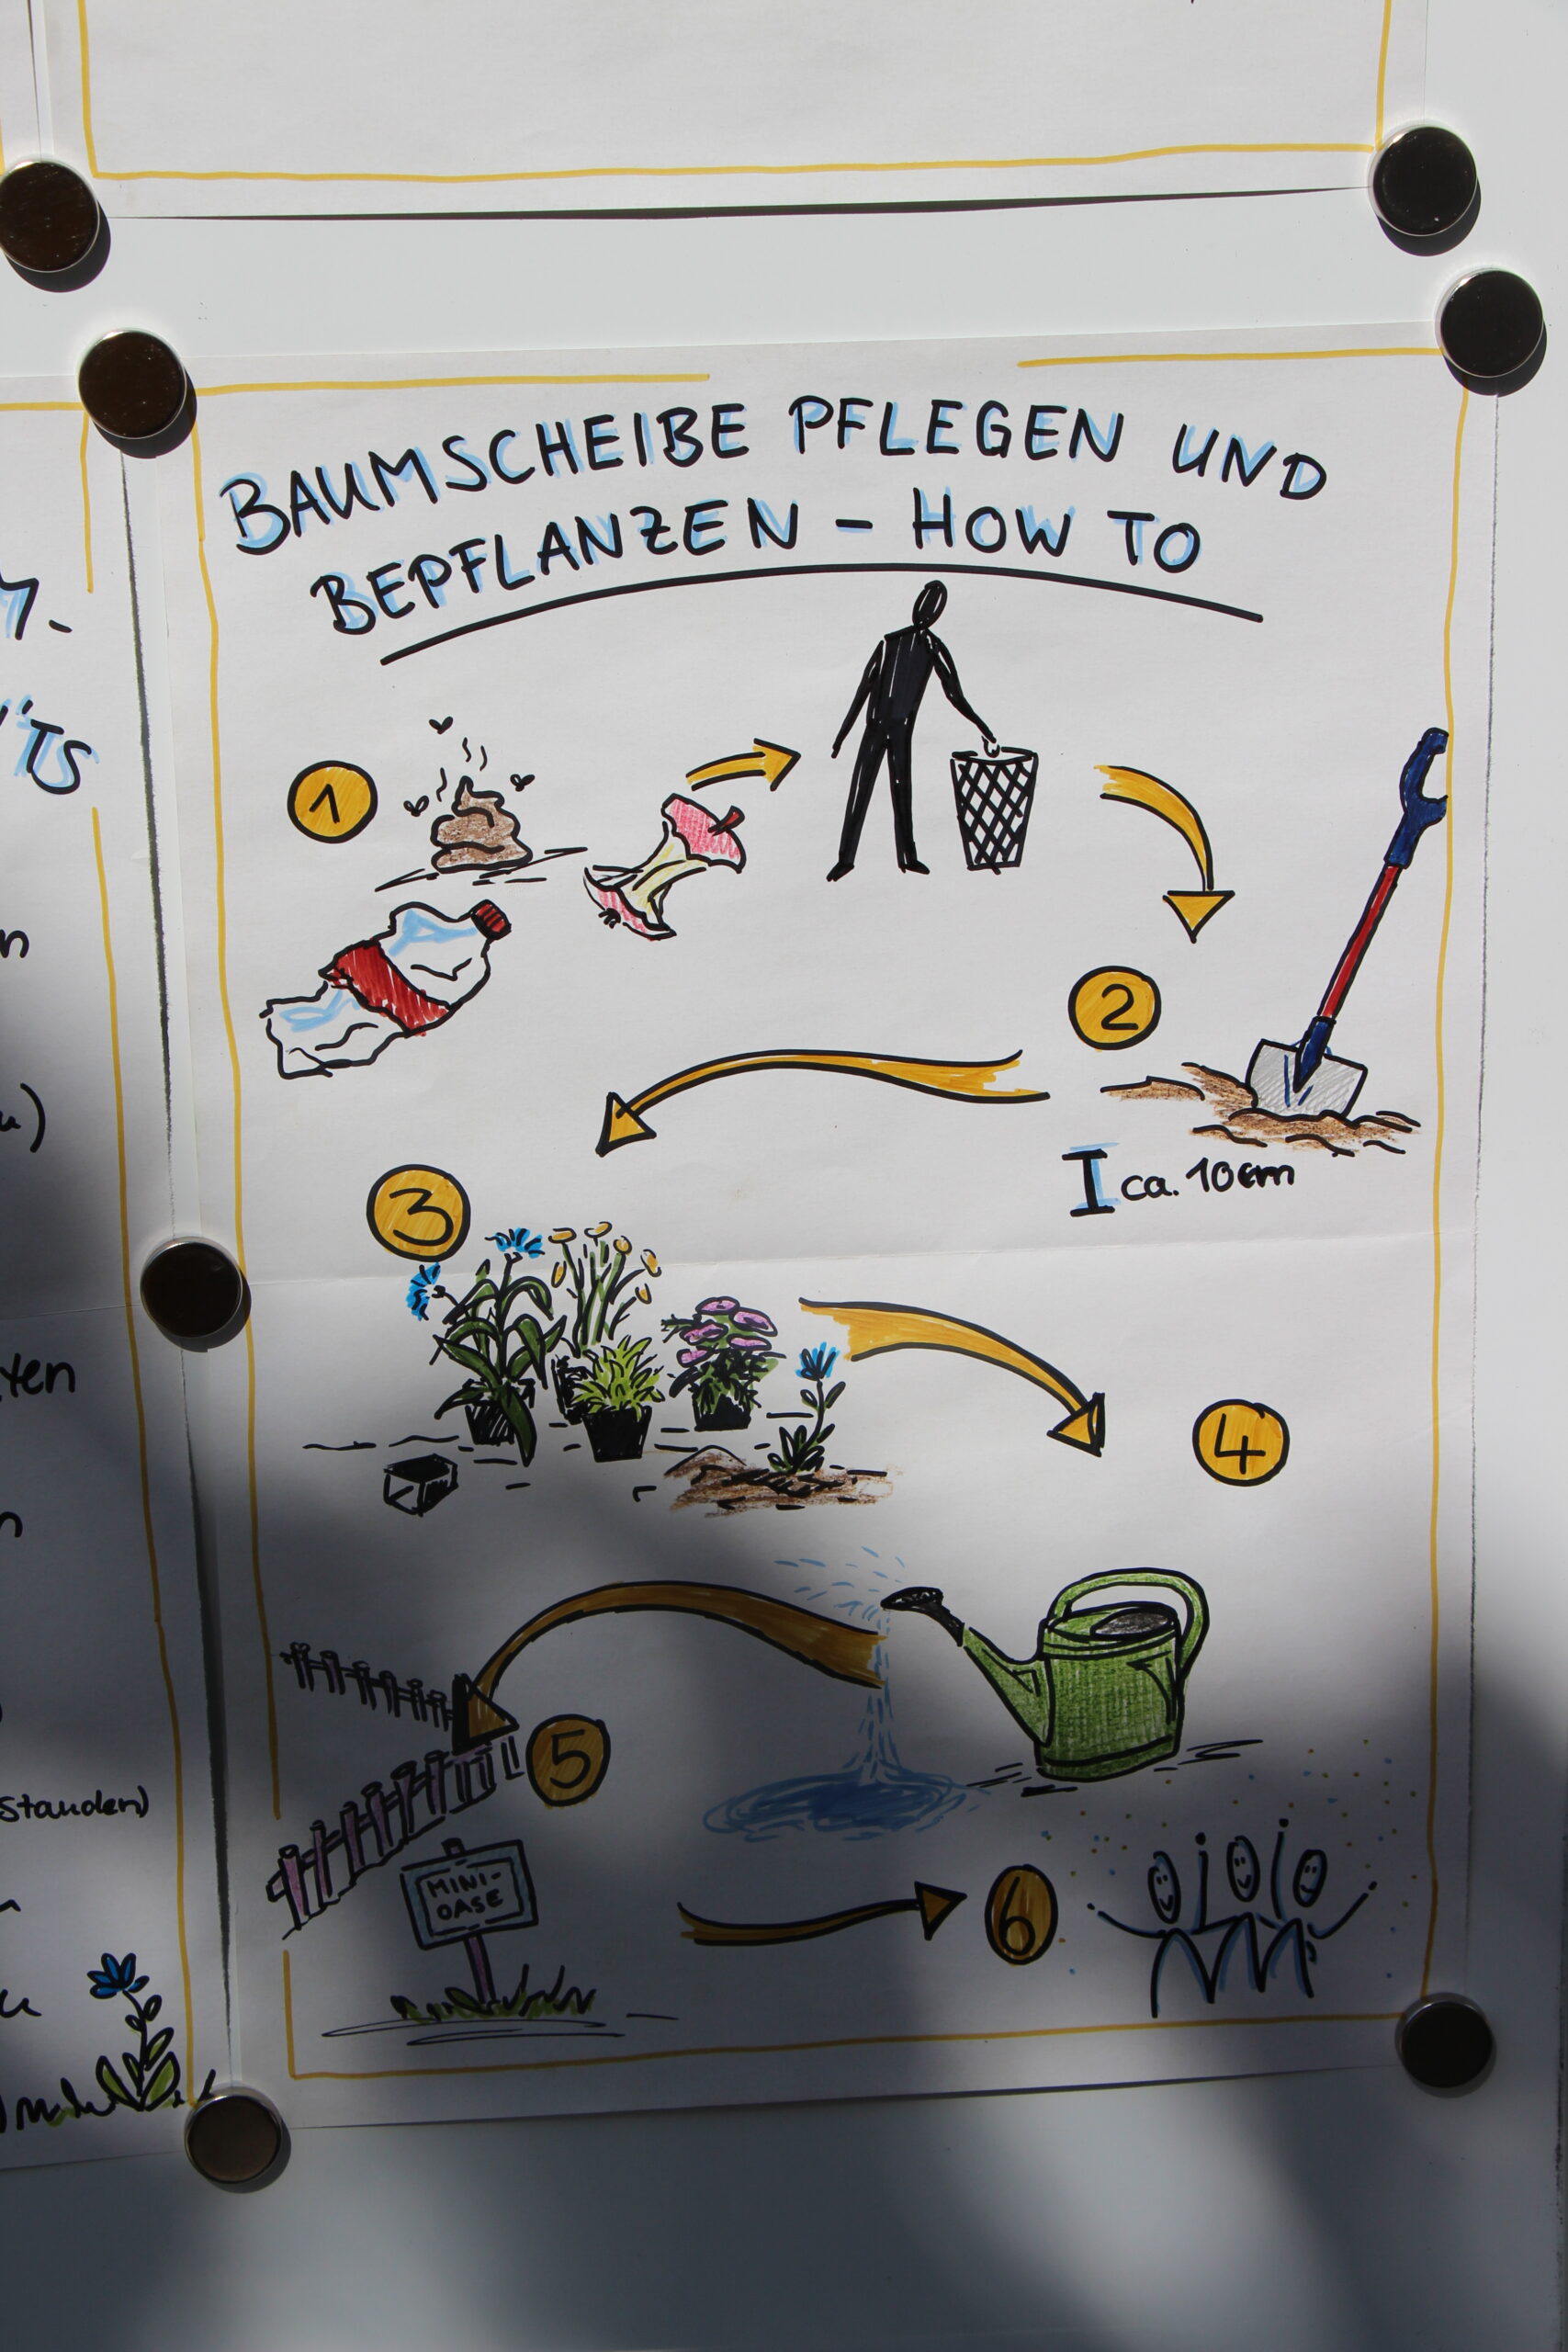 BAUMSCHEIBE PFLEGEN UND
BEPFLANZEN - HOW TO
1
2
I ca. 10cm
3
4
5
MINI-
OASE
6
standen)